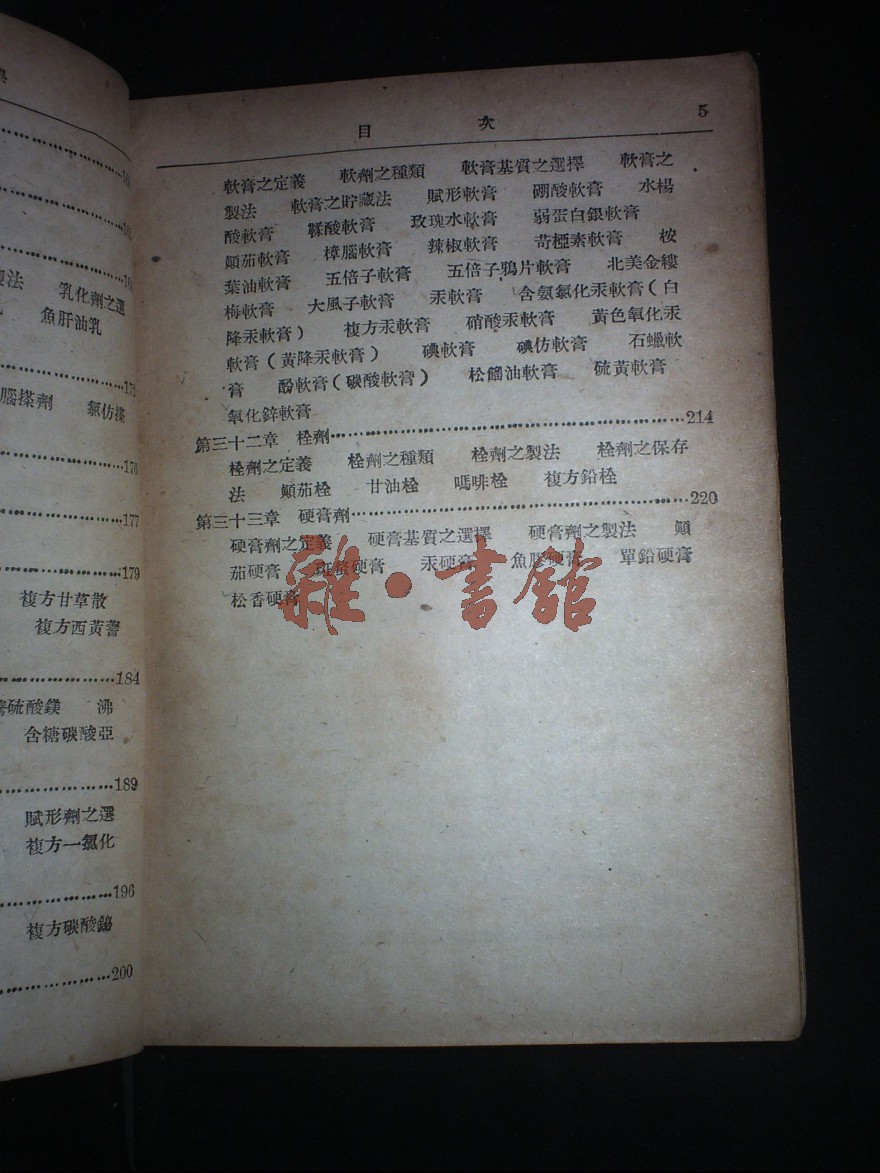 171
176
177
179
複方甘草散
複方西黃蓍
184
硫酸鎂 沸
含糖碳酸亞
189
賦形劑之選
複方一氯化
196
複方碳酸鉍
200
乳化劑之選
魚肝油乳
腦搽劑 氯仿搽
目 次 5
軟膏之定義 軟劑之種類 軟膏基質之選擇 軟膏之
製法 軟膏之貯藏法 賦形軟膏 硼酸軟膏 水楊
酸軟膏 鞣酸軟膏 玫瑰水軟膏 弱蛋白銀軟膏
顛茄軟膏 樟腦軟膏 辣椒軟膏 苛極素軟膏 桉
葉油軟膏 五倍子軟膏 五倍子鴉片軟膏 北美金縷
梅軟膏 大風子軟膏 汞軟膏 含氨氯化汞軟膏(白
降汞軟膏) 複方汞軟膏 硝酸汞軟膏 黃色氧化汞
軟膏(黃降汞軟膏) 碘軟膏 碘仿軟膏 石蠟軟
膏 酚軟膏(碳酸軟膏) 松餾油軟膏 硫黃軟膏
氧化鋅軟膏
第三十二章 栓劑……214
栓劑之定義 栓劑之種類 栓劑之製法 栓劑之保存
法 顛茄栓 甘油栓 嗎啡栓 複方鉛栓
第三十三章 硬膏劑……220
硬膏劑之定義 硬膏基質之選擇 硬膏劑之製法 顛
茄硬膏 斑蝥硬膏 汞硬膏 魚膠硬膏 單鉛硬膏
松香硬膏
雜·書館